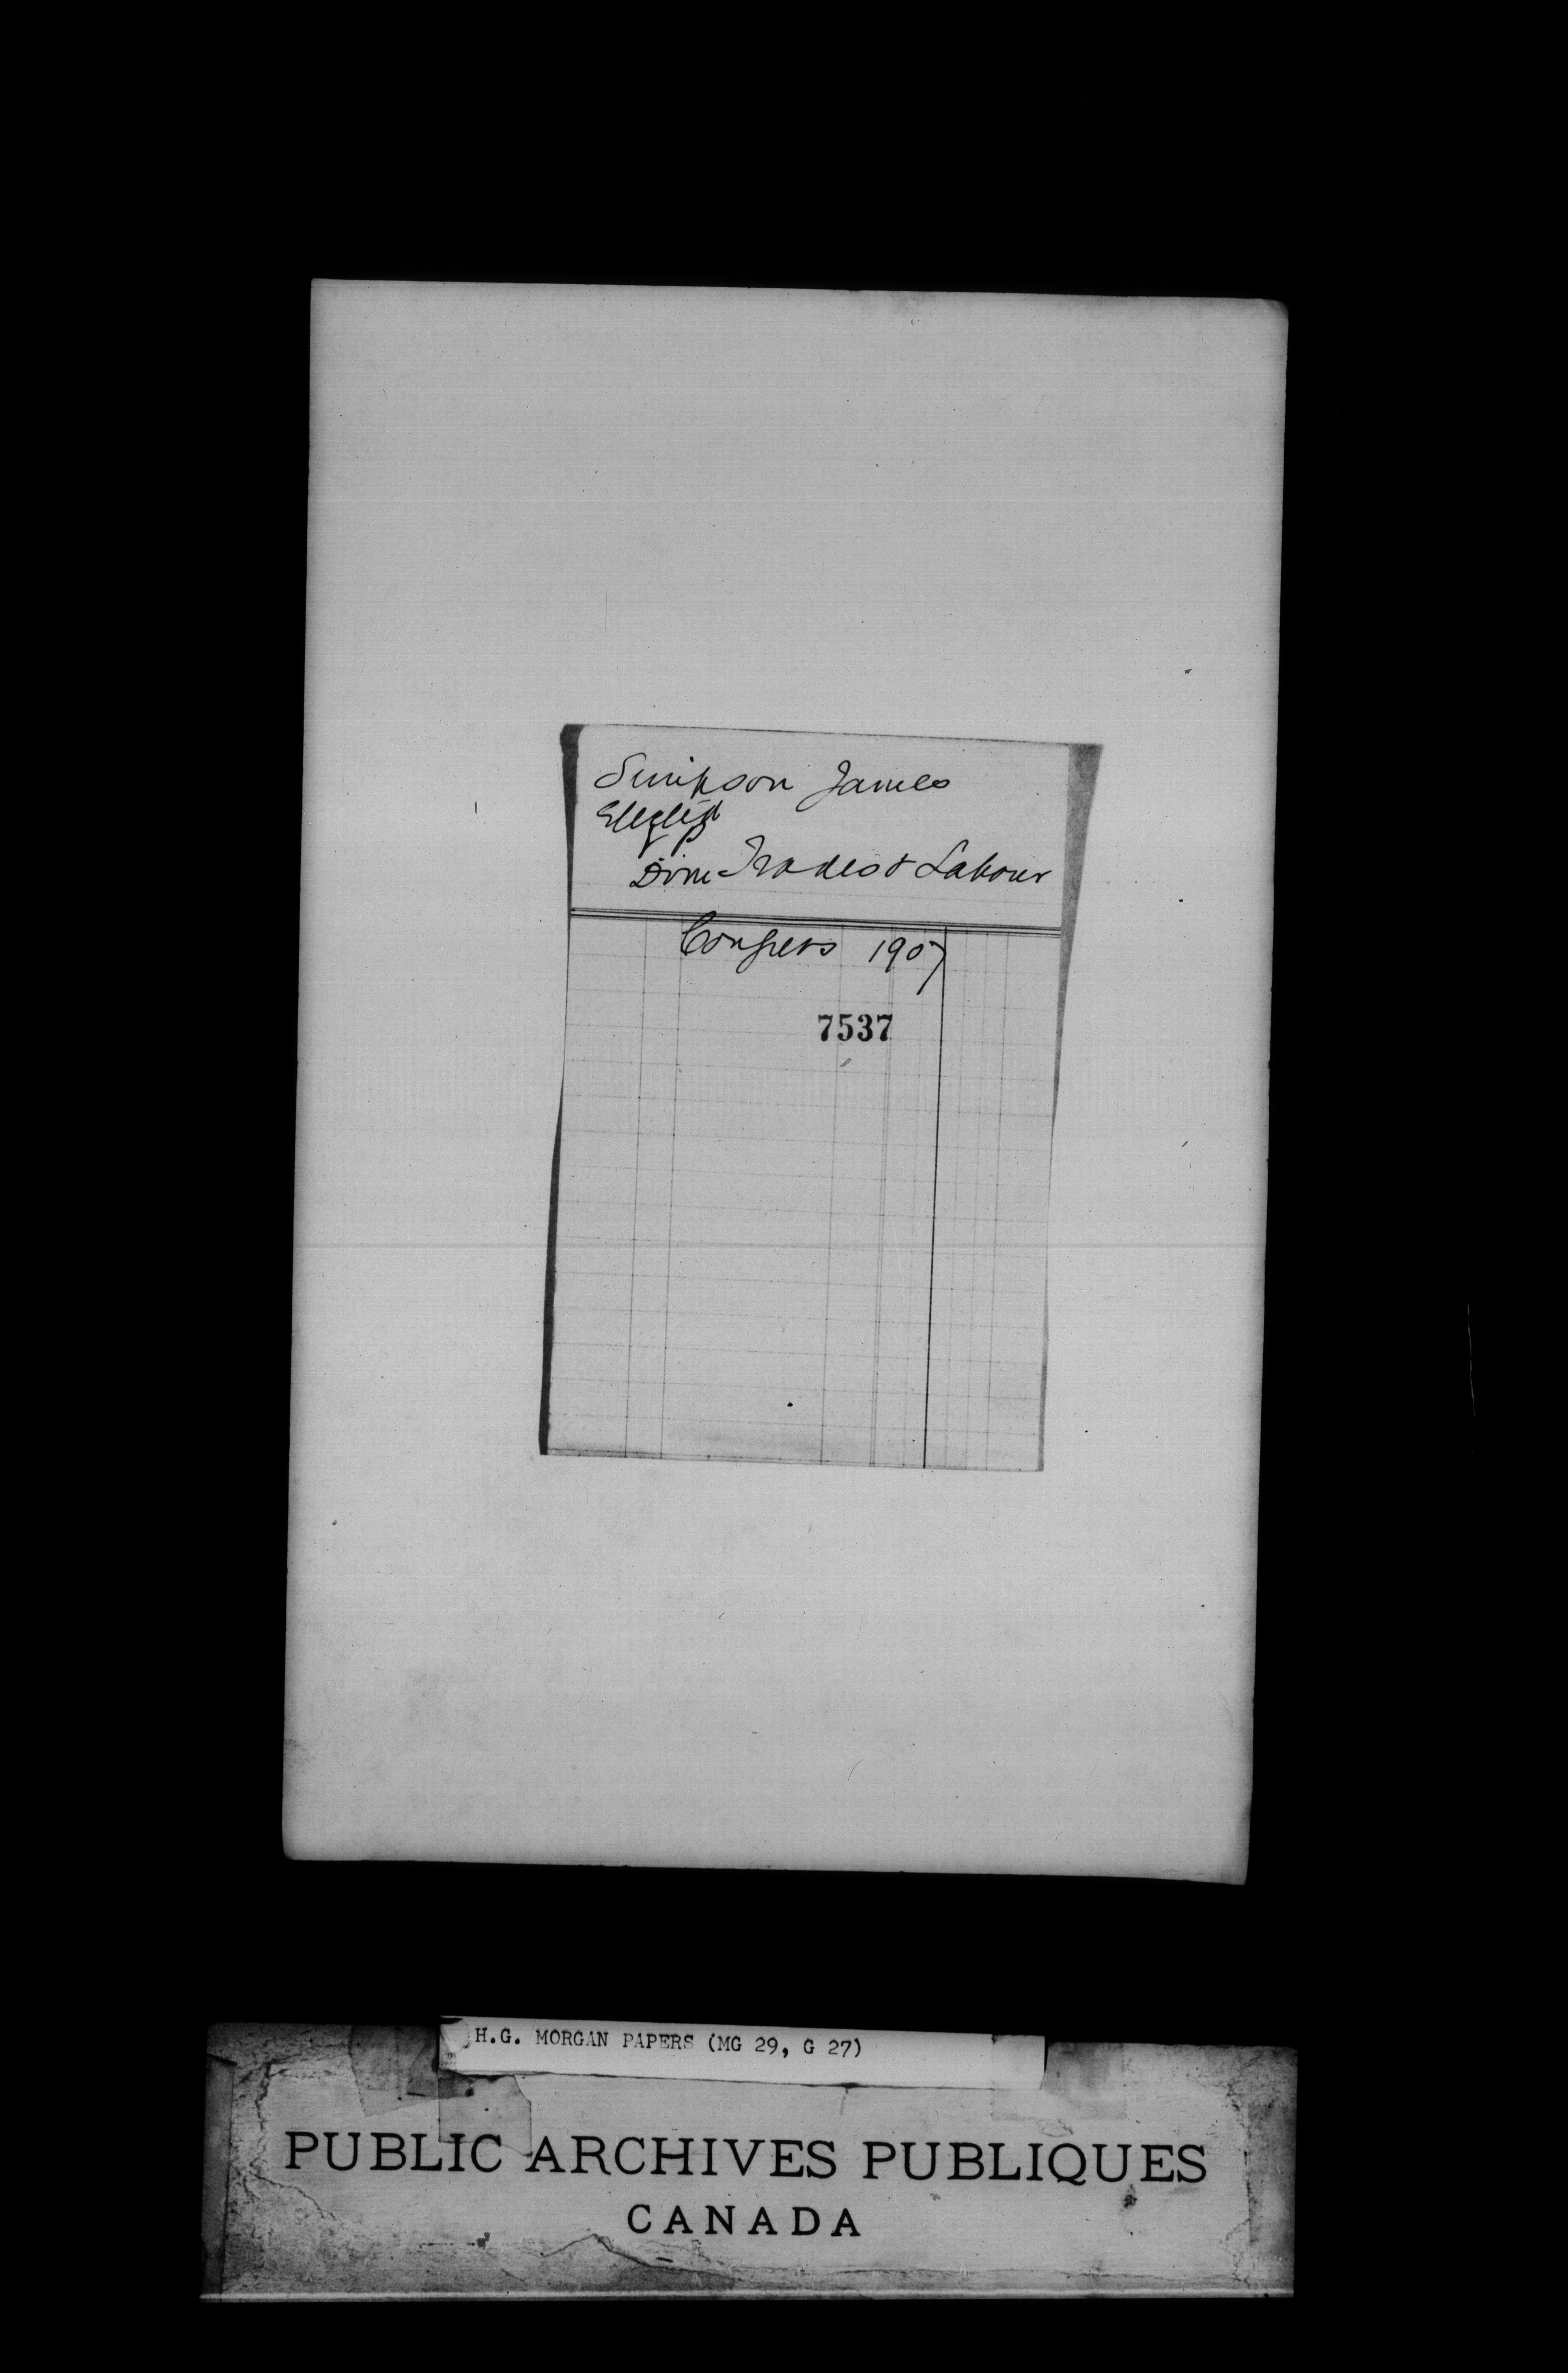 Simpson James
Dom Trades & Labour
Congress 1907
7537
H.G. MORGAN PAPERS (MG 29, G 27)
PUBLIC ARCHIVES PUBLIQUES
CANADA